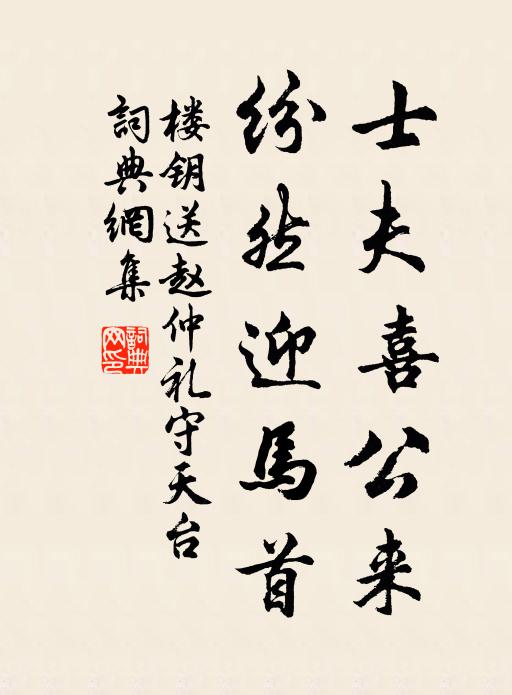 士夫喜公来
纷然迎馬首
楼钥送赵仲礼守天台
詞典網集
詞典网印